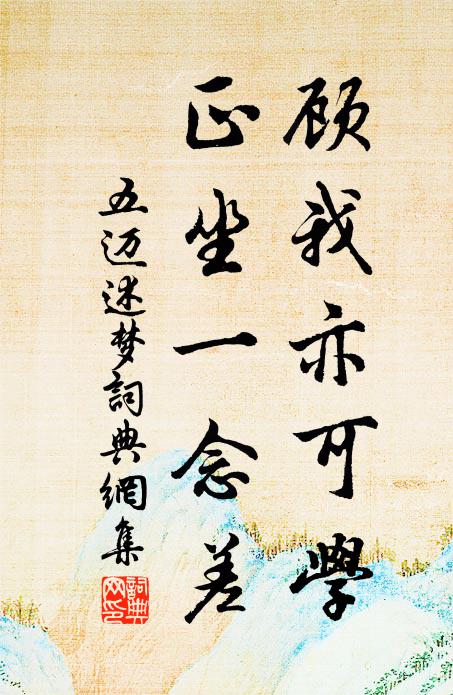 顾我亦可學
正坐一念差
五迈迷梦詞典網集
詞典